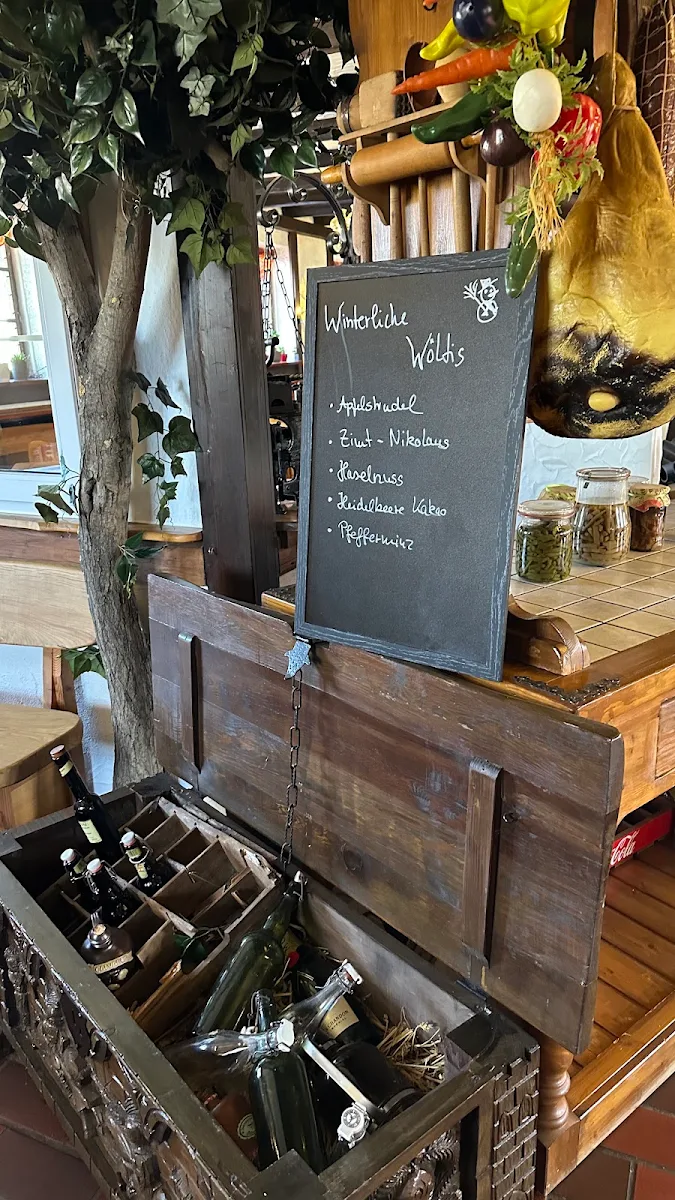 Winterliche
Wöldis
• Apfelstrudel
• Zimt - Nikolaus
• Haselnuss
• Heidelbeere Kakao
• Pfefferminz
Cola